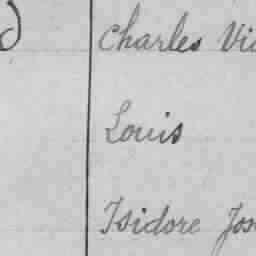 Charles Vi
Louis
Isidore Jos